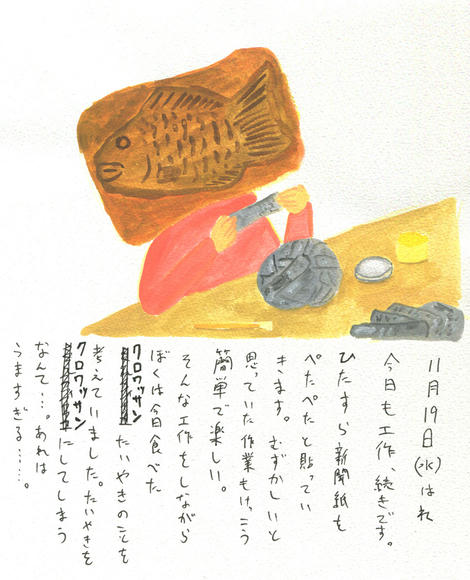 11月19日(水)はれ
今日も工作、続きです。
ひたすら新聞紙を
ぺたぺたと貼ってい
きます。むずかしいと
思っていた作業もけっこう
簡単で楽しい。
そんな工作をしながら
ぼくは今日食べた
クロワッサンたいやきのことを
考えていました。たいやきを
クロワッサンにしてしまう
なんて…。あれは
うますぎる……。